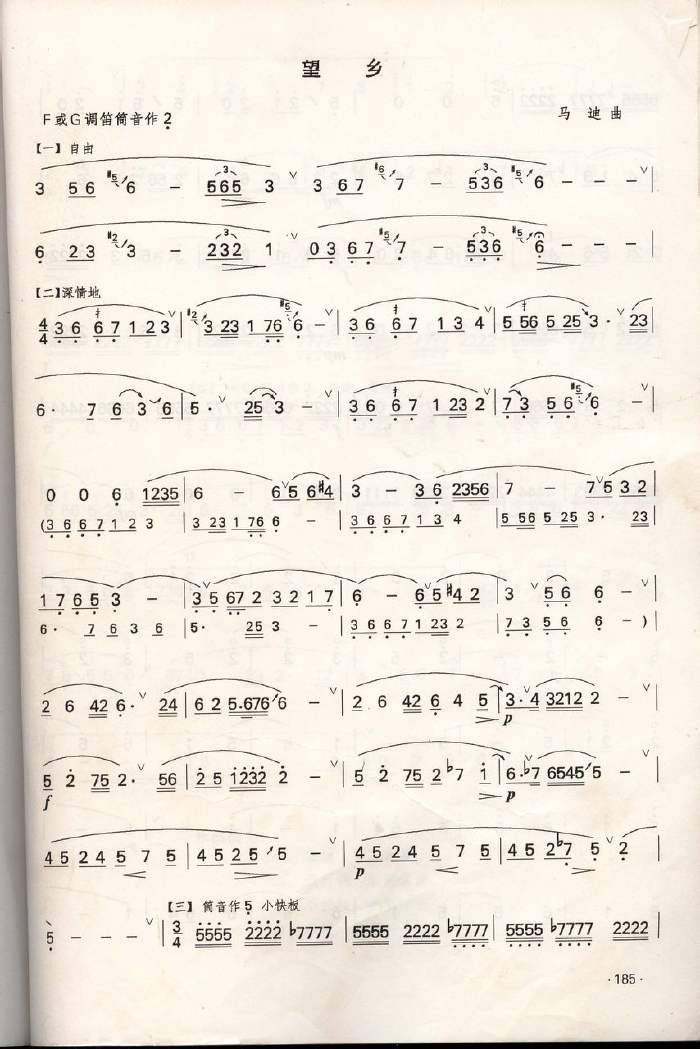 望 乡
F或G调笛筒音作2
马 迪 曲
【一】自由
3 5 6 #5 6 - 5 6 5 3 | 3 6 7 #6 7 - 5 3 6 #5 6 - |
6 2 3 #2 3 - 2 3 2 1 | 0 3 6 7 #6 7 - 5 3 6 #5 6 - |
【二】深情地
4/4 3 6 6 7 1 2 3 | #2 3 23 1 76 #5 6 - | 3 6 6 7 1 3 4 | 5 56 5 25 3 · 23 |
6 · 7 6 3 6 | 5 · 25 3 - | 3 6 6 7 1 23 2 | 7 3 5 6 #5 6 - |
0 0 6 1235 | 6 - 6 5 6 #4 | 3 - 3 6 2356 | 7 - 7 5 3 2 |
(3 6 6 7 1 2 3 | 3 23 1 76 6 - | 3 6 6 7 1 3 4 | 5 56 5 25 3 · 23 |
1 7 6 5 3 - | 3 5 67 2 3 2 1 7 | 6 - 6 5 #4 2 | 3 5 6 6 - |
6 · 7 6 3 6 | 5 · 25 3 - | 3 6 6 7 1 23 2 | 7 3 5 6 6 - )
2 6 42 6 · 24 | 6 2 5·676 6 - | 2 6 42 6 4 5 | 3 · 4 3212 2 - |
p
5 2 75 2 · 56 | 2 5 1232 2 - | 5 2 75 2 b7 1 | 6 · b7 6545 5 - |
f p
4 5 2 4 5 7 5 | 4 5 2 5 5 - | 4 5 2 4 5 7 5 | 4 5 2 b7 5 2 |
p
【三】筒音作5 小快板
5 - - - | 3/4 5555 2222 b7777 | 5555 2222 b7777 | 5555 b7777 2222 | 5555 b7777 2222 |
·185·